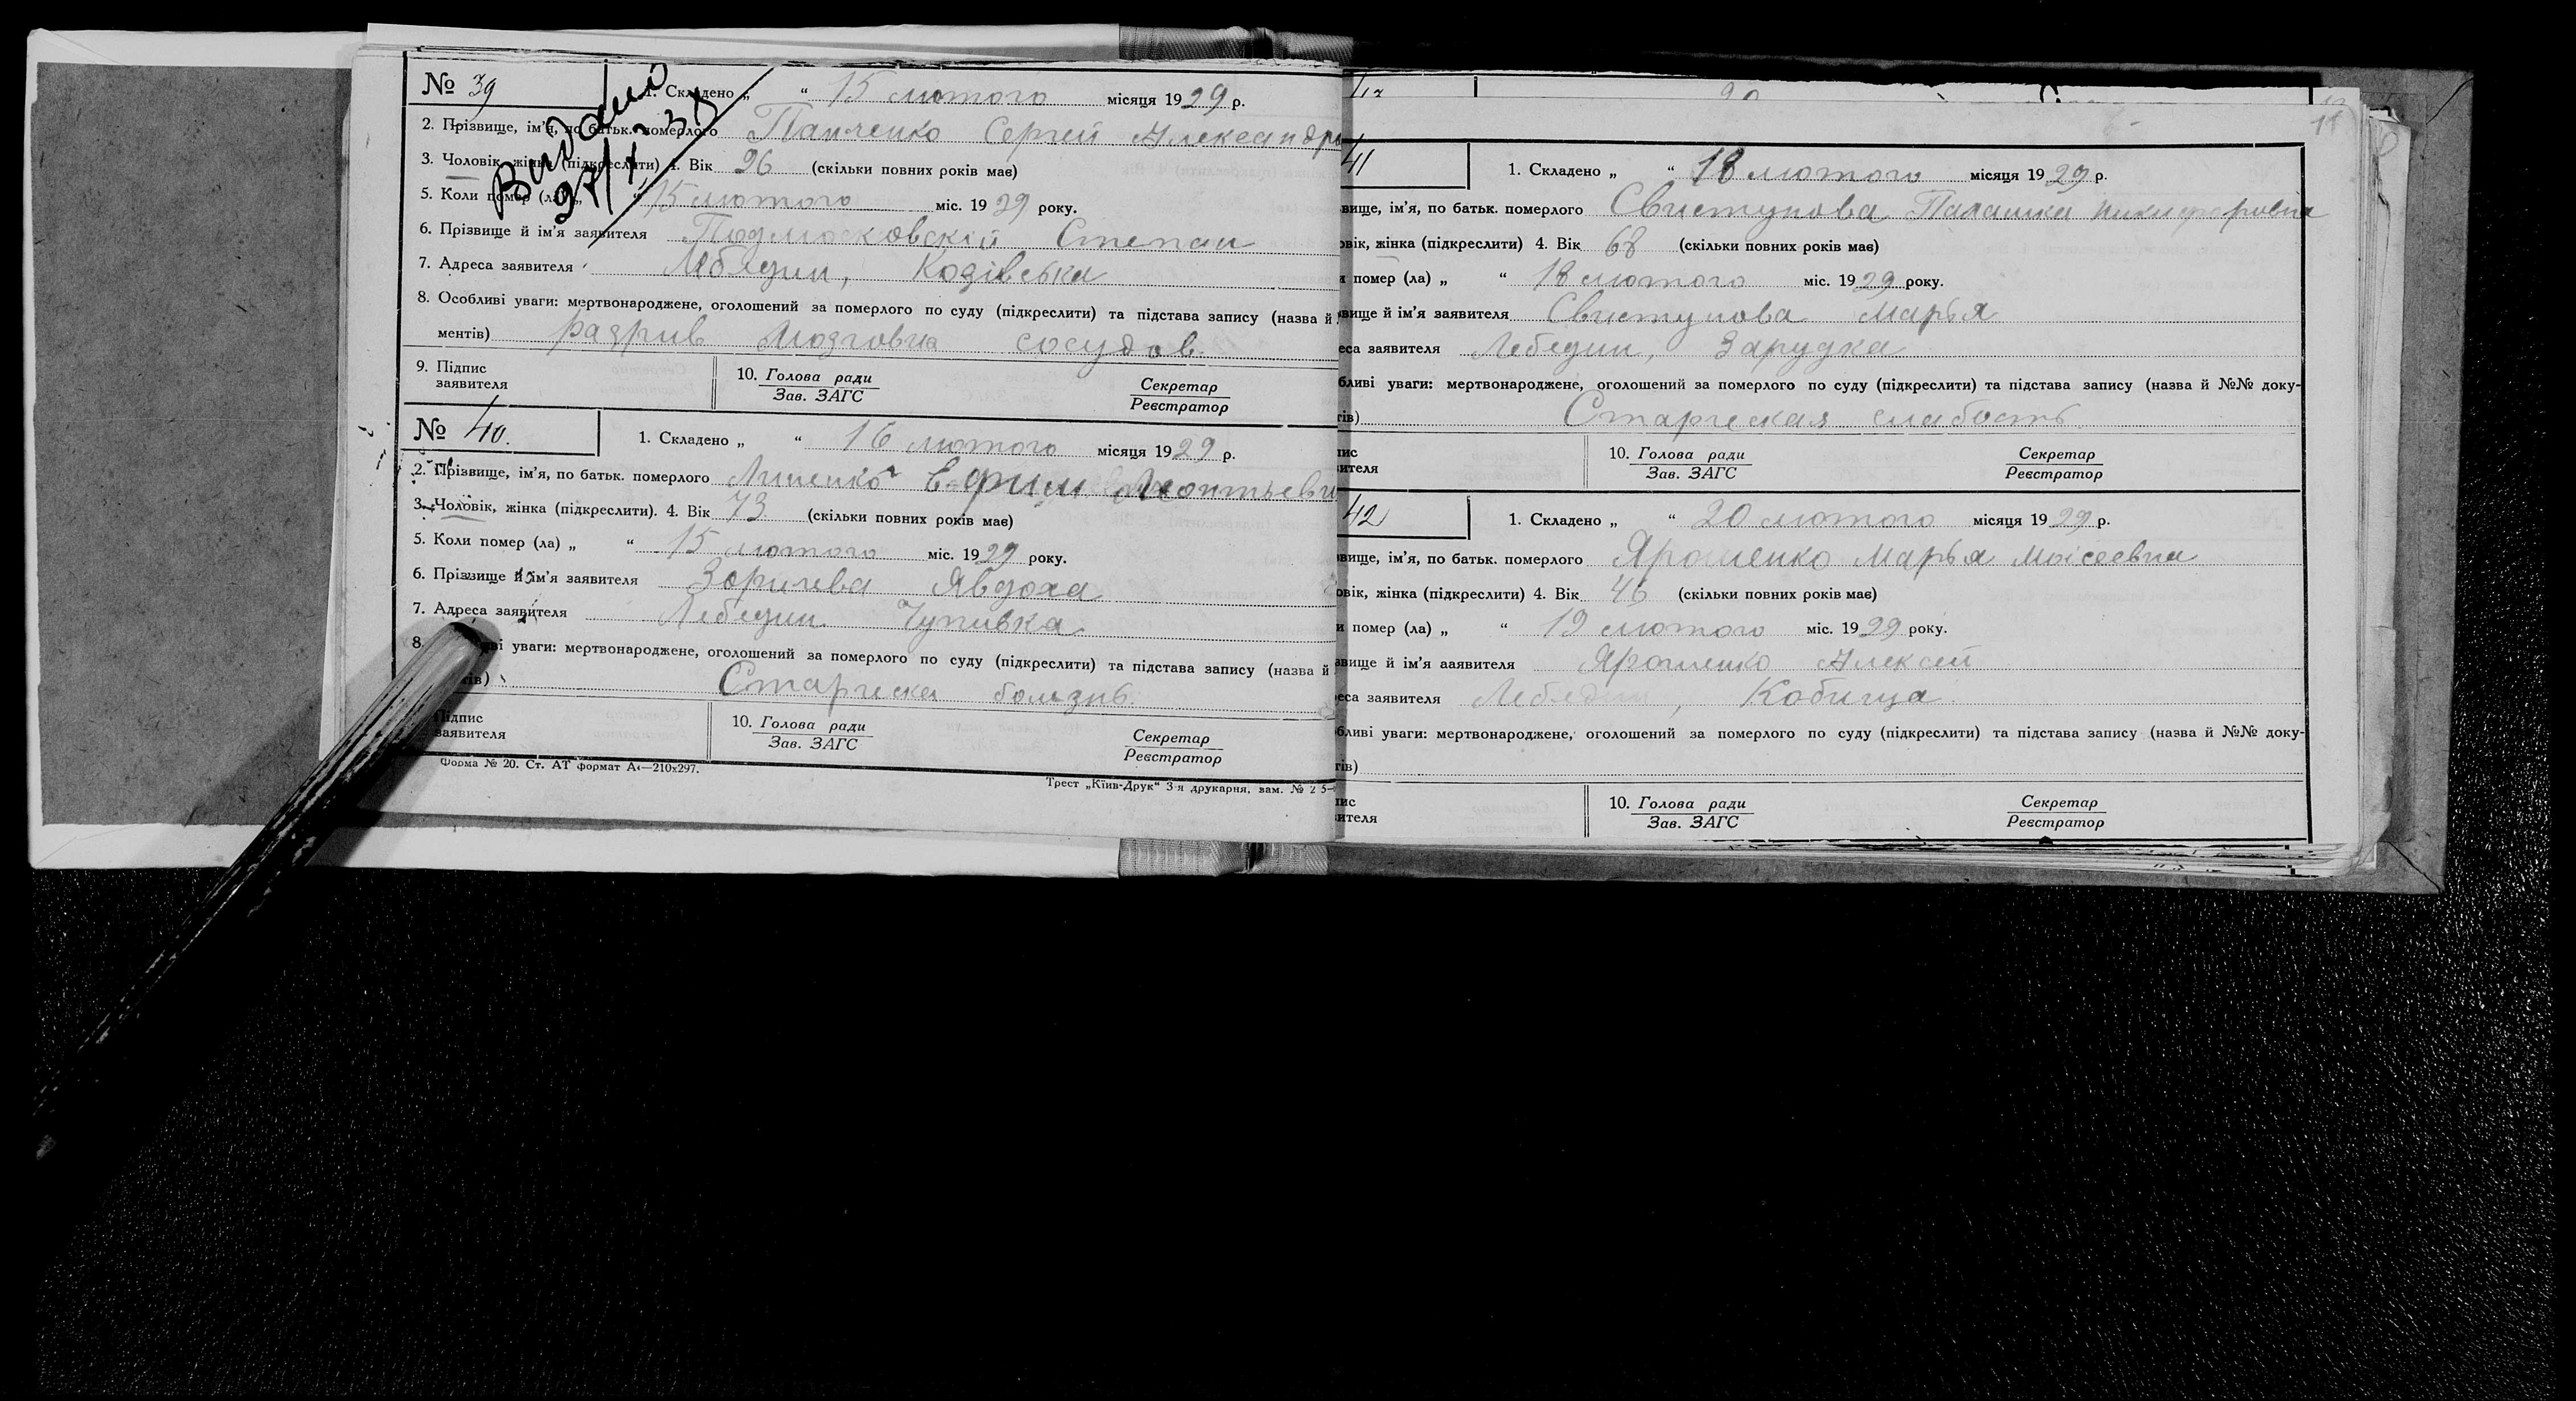 № 39
1. Складено „ “ 15 лютого місяця 1929 р.
Видано
2. Прізвище, ім'я, по батьк. померлого Панченко Сергей Александро
3. Чоловік, жінка (підкреслити) 4. Вік 26 (скільки повних років має)
5. Коли помер (ла) „ “ 15 лютого міс. 1929 року.
6. Прізвище й ім'я заявителя Подмосковскій Степан
7. Адреса заявителя Лебедин, Козівська
8. Особливі уваги: мертвонароджене, оголошений за померлого по суду (підкреслити) та підстава запису (назва й
ментів) разрив мозговиа сосудов
9. Підпис заявителя
10. Голова ради Зав. ЗАГС
Секретар Реєстратор
№ 40.
1. Складено „ “ 16 лютого місяця 1929 р.
2. Прізвище, ім'я, по батьк. померлого Ефим Леонтьеви
3. Чоловік, жінка (підкреслити). 4. Вік 73 (скільки повних років має)
5. Коли помер (ла) „ “ 15 лютого міс. 1929 року.
6. Прізвище й ім'я заявителя Явдоха
7. Адреса заявителя Лебедин
8. уваги: мертвонароджене, оголошений за померлого по суду (підкреслити) та підстава запису (назва й
тів) Старческа болезнь.
Підпис заявителя
10. Голова ради Зав. ЗАГС
Секретар Реєстратор
Форма № 20. Ст. АТ формат А4—210х297.
Трест „Київ-Друк“ 3-я друкарня, зам. №
11
41
1. Складено „ “ 18 лютого місяця 1929 р.
вище, ім'я, по батьк. померлого Свистунова Палашка Никифоровна
овік, жінка (підкреслити) 4. Вік 68 (скільки повних років має)
и помер (ла) „ “ 18 лютого міс. 1929 року.
вище й ім'я заявителя Свистунова Марья
еса заявителя Лебедин, Зарудка
бливі уваги: мертвонароджене, оголошений за померлого по суду (підкреслити) та підстава запису (назва й №№ доку-
тів) Старческая слабость
пис вителя
10. Голова ради Зав. ЗАГС
Секретар Реєстратор
42
1. Складено „ “ 20 лютого місяця 1929 р.
вище, ім'я, по батьк. померлого Ярошенко Марья Моісеевна
овік, жінка (підкреслити) 4. Вік 46 (скільки повних років має)
и помер (ла) „ “ 19 лютого міс. 1929 року.
звище й ім'я заявителя Ярошенко Алексей
еса заявителя Лебедин, Кобища
бливі уваги: мертвонароджене, оголошений за померлого по суду (підкреслити) та підстава запису (назва й №№ доку-
тів)
пис вителя
10. Голова ради Зав. ЗАГС
Секретар Реєстратор